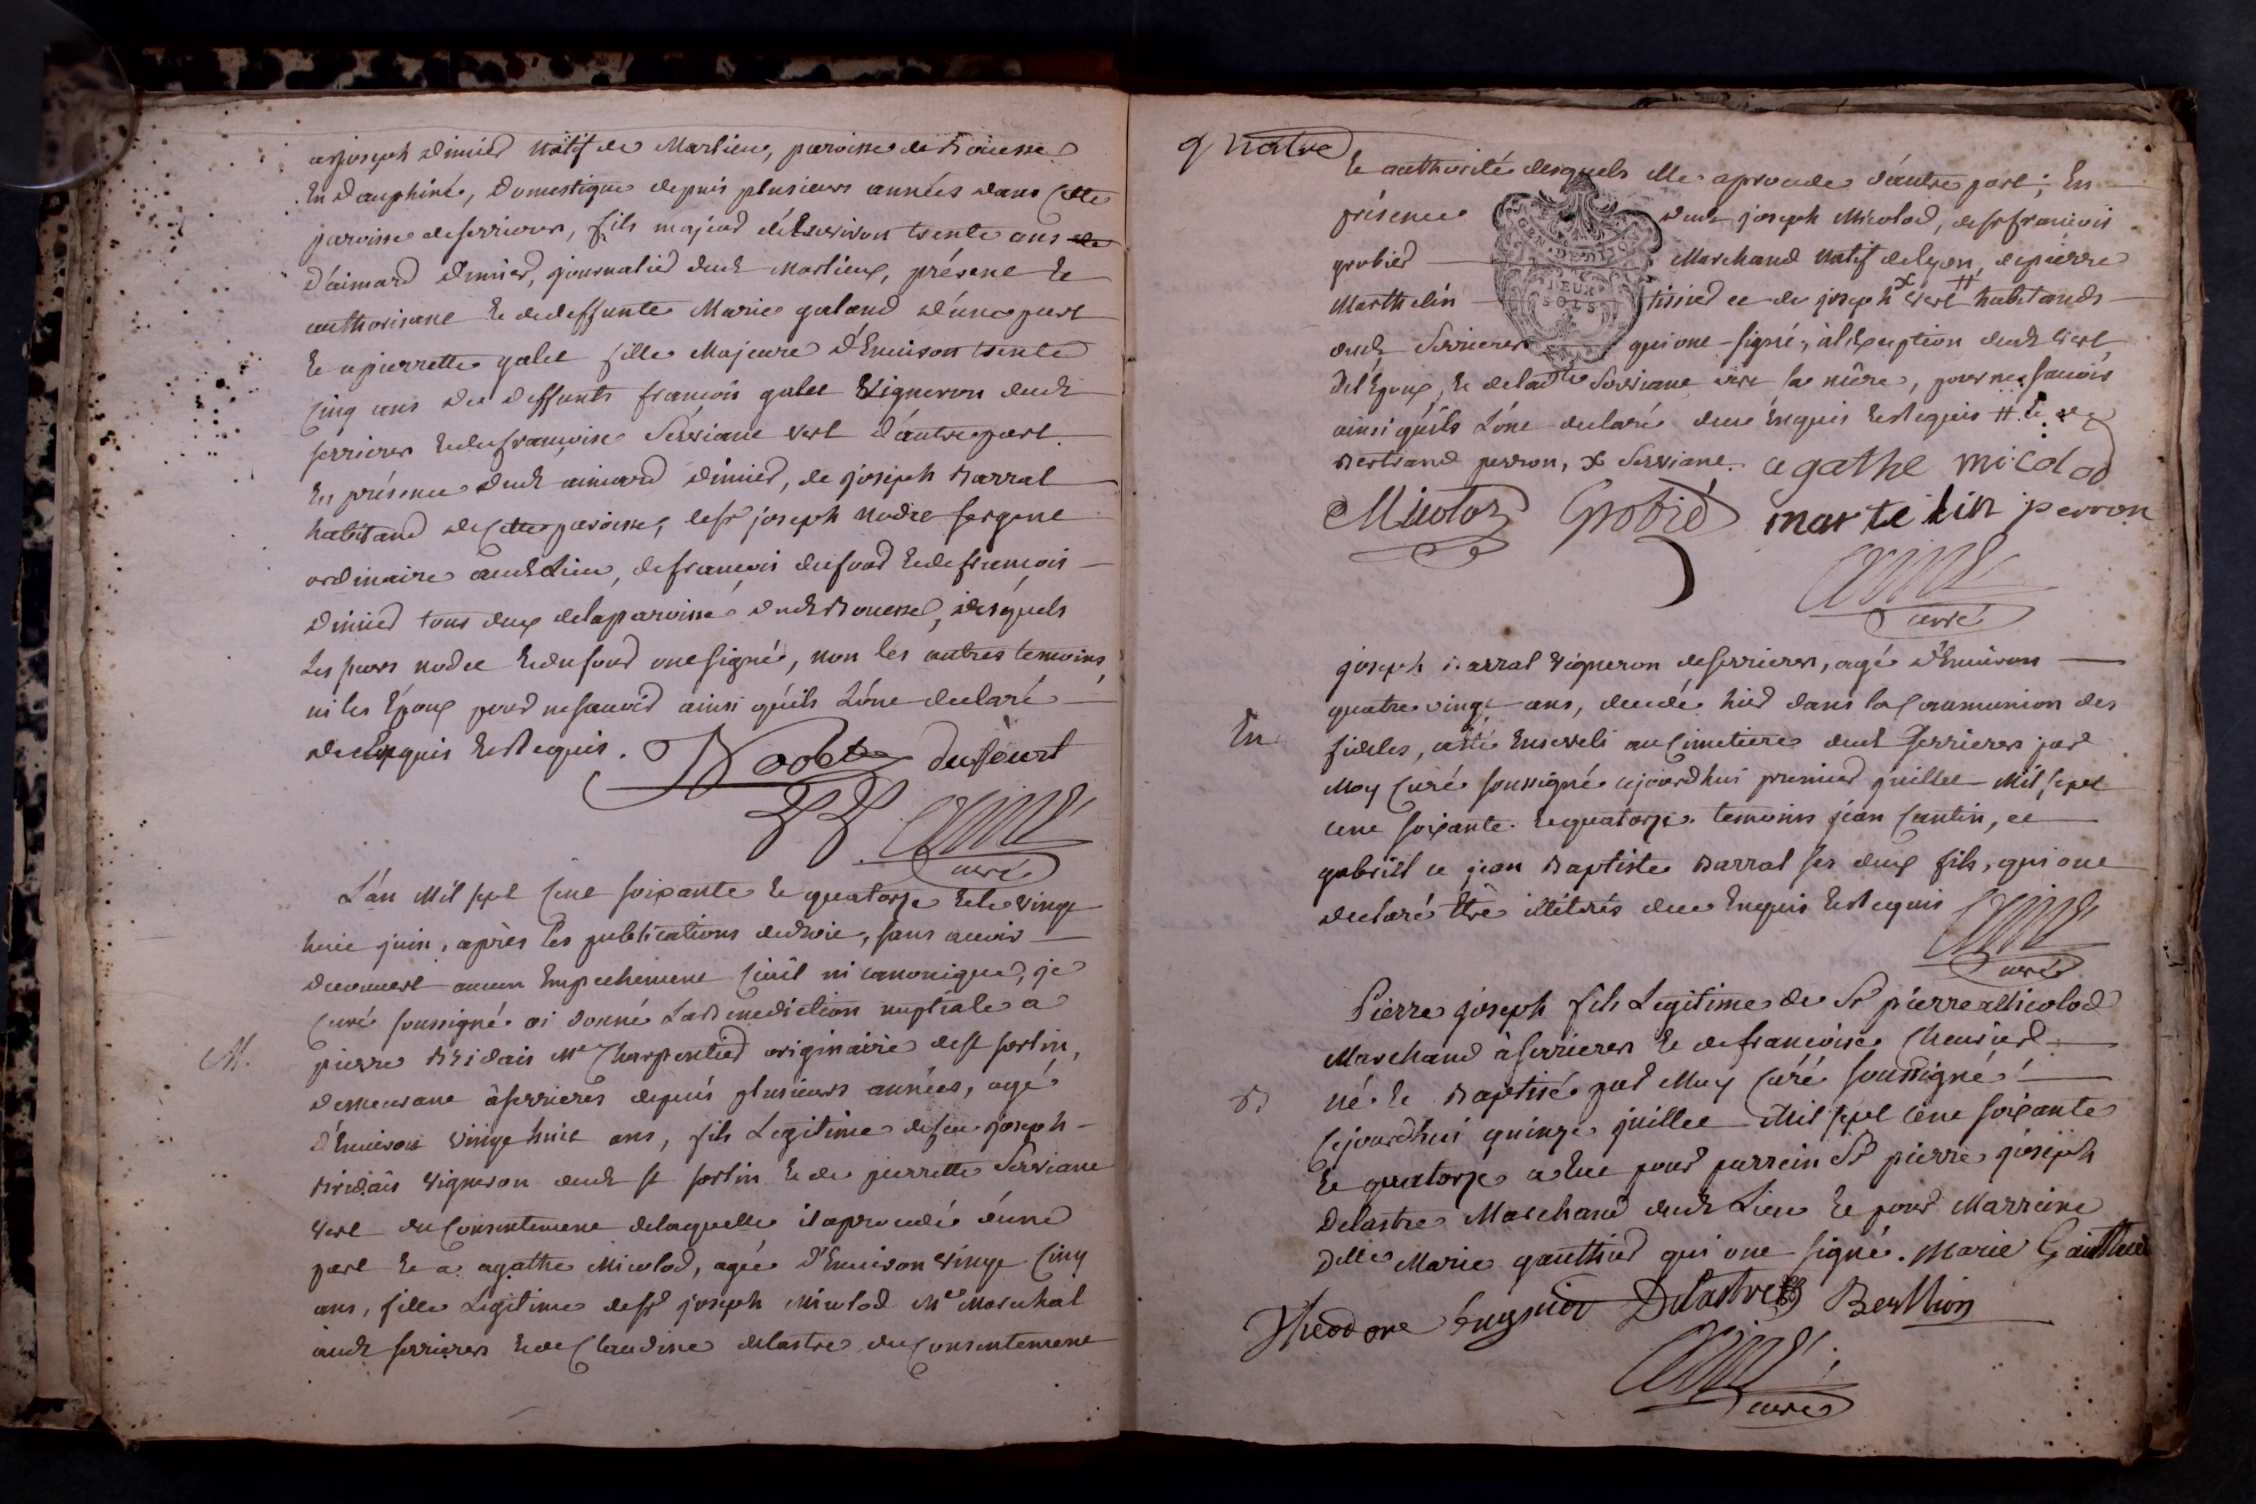 a joseph Dimier natif de Martieu, paroisse de Bouesse
en dauphiné, Domestique depuis plusieurs années dans cette
paroisse de serrieres, fils majeur d'environ trente ans
d'aimard Dimier, journalier dudt Martieux, présent et
authorisant et de deffunte Marie galand d'une part
et a pierrette galet fille Majeure d'Environ trente
cinq ans de deffunts françois galet Vigneron dudt
serrieres et de françoise Serviant vert d'autre part.
En présence dudt aimard Dimier, de joseph Barral
habitand de Cette paroisse, de sr joseph nodet sergent
ordinaire audt Lieu, de françois dufour et de françois
Dimier tous deux de la paroisse dudt Bouesse, desquels
Les srs nodet et dufour ont signé, non les autres temoins
ni les Epoux pour ne savoir ainsi qu'ils L'ont declaré
de ce Enquis et Requis. Nodet dufourt
curé
L'an Mil sept Cent soixante et quatorze et le vingt
huit juin, après les publications dudroit, sans avoir
decouvert aucun Empechement civil ni canonique, je
Curé soussigné ai donné La Benediction nuptiale a
M.
pierre Bridais Me Charpentier originaire de st sortin,
demeurant à serrieres depuis plusieurs années, agé
d'Environ vingt huit ans, fils Legitime de feu joseph
Bridais vigneron dudt st sortin et de pierrette Serviant
vert du Consentement de laquelle il a procedé d'une
part et a agathe Micolod, agée d'Environ vingt Cinq
ans, fille Legitime de sr joseph Micolod Me Marechal
audt serrieres et de Claudine delastre du Consentement
quatre
et authorité desquels elle a procedé d'autre part; En
présence dudt joseph Micolod, de sr francois
grobier Marchand natif de Lyon, de pierre
Marthelin tissier et de joseph x vert # habitands
dudt Serrieres qui ont signé, à l'Exeption dudt vert,
de l'Epoux, et de ladte Serviant vert sa mère, pour ne savoir
ainsi qu'ils L'ont declaré de ce Enquis et Requis # et de
Bertrand perron, x Serviant. agathe micolod
Micolod Grobié martelin perron
curé
joseph Barral vigneron de serrieres, agé d'Environ
quatre vingt ans, decedé hier dans la Communion des
En
fideles, a été Enseveli au Cimetiere dudt Serrieres par
Moy Curé soussigné cejourdhui premier juillet Mil sept
cent soixante et quatorze temoins jean Cantin, et
gabriel et jean Baptiste Barral ses deux fils, qui ont
declaré être illiterés de ce Enquis et Requis
curé
Pierre joseph fils Legitime de Sr pierre Micolod
Marchand à serrieres et de francoise Cheurier
B
né et Baptisé par Moy Curé soussigné
Cejourdhui quinze juillet Mil sept Cent soixante
et quatorze a Eut pour parrein Sr pierre joseph
Delastre Marchand dudt Lieu et pour Marreine
Delle Marie gauthier qui ont signé. Marie Gauthier
Theodore Delastre Berthion
curé